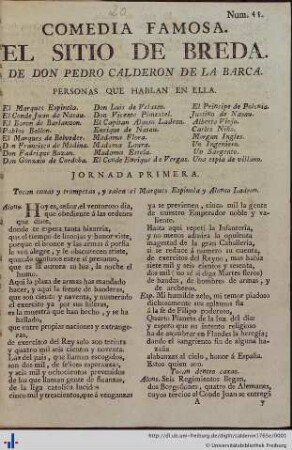 20
Num. 41.
COMEDIA FAMOSA.
EL SITIO DE BREDA.
DE DON PEDRO CALDERON DE LA BARCA.
PERSONAS QUE HABLAN EN ELLA.
El Marques Espinola.
El Conde Juan de Nasau.
El Baron de Barlanzon.
Pablos Ballon.
El Marques de Belveder.
Don Francisco de Medina.
Don Fadrique Bazan.
Don Gonzalo de Cordoba.
Don Luis de Velasco.
Don Vicente Pimentel.
El Capitan Alonso Ladron.
Enrique de Nasau.
Madama Flora.
Madama Laura.
Madama Estela.
El Conde Enrique de Vergas.
El Principe de Polonia.
Justino de Nasau.
Alberto, Viejo.
Carlos, Niño.
Morgan, Ingles.
Un Ingeniero.
Un Sargento.
Una espia de villano.
JORNADA PRIMERA.
Tocan caxas y trompetas, y salen el Marques Espinola y Alonso Ladron.
Alons. Hoy es, señor, el venturoso dia,
que obediente á las ordenes
que diste,
donde se espera tanta bizarria,
que el tiempo de licencia y honor viste,
porque el bronce y las armas á porfia
le ven alegre, y le obscurecen triste,
quando equivoco entre el presume,
que es la aurora su luz, la noche el
humo.
Aqui la plaza de armas has mandado
hacer, y aqui la frente de banderas,
que son ciento y noventa, y numerado
el exercito ya por sus hileras,
es la muestra que han hecho, y se ha
hallado,
que entre propias naciones y extrange-
ras,
de exercitos del Rey solo son treinta
y quatro mil seis cientos y noventa.
Y la del pais, que llaman escogidos,
son dos mil, de felices esperanzas,
y seis mil y ochocientos prevenidos
de los que llaman gente de finanzas,
de la liga catolica lucidos
cinco mil y trescientos, que á venganzas
ya se previenen, cinco mil la gente
de nuestro Emperador noble y va-
liente.
Hasta aqui repetí la Infanteria,
y no menos admira la opulenta
magestad de la gran Caballeria,
si se reduce á numero su cuenta,
del exercito del Reyno, mas habia
siete mil y seis cientos y setenta,
dos mil (no sé si diga Martes fieros)
de bandas, de hombres de armas, y
de archeros.
Esp. Mi humilde zelo, mi temor piadoso
dichosamente sus aplausos fia
á la fe de Felipo poderoso,
Quarto Planeta de la luz del dia:
y espero que su intento religioso
ha de asombrar en Flandes la heregia;
dando el sangriento fin de alguna ha-
zaña
alabanzas al cielo, honor á España.
Estos quien son.
Tocan dentro caxas.
Alons. Seis Regimientos llegan,
dos Borgoñones, quatro de Alemanes,
cuyos tercios al Conde Juan se entregan
A
y
http://dl.ub.uni-freiburg.de/diglit/calderon1765c/0001
© Universitätsbibliothek Freiburg